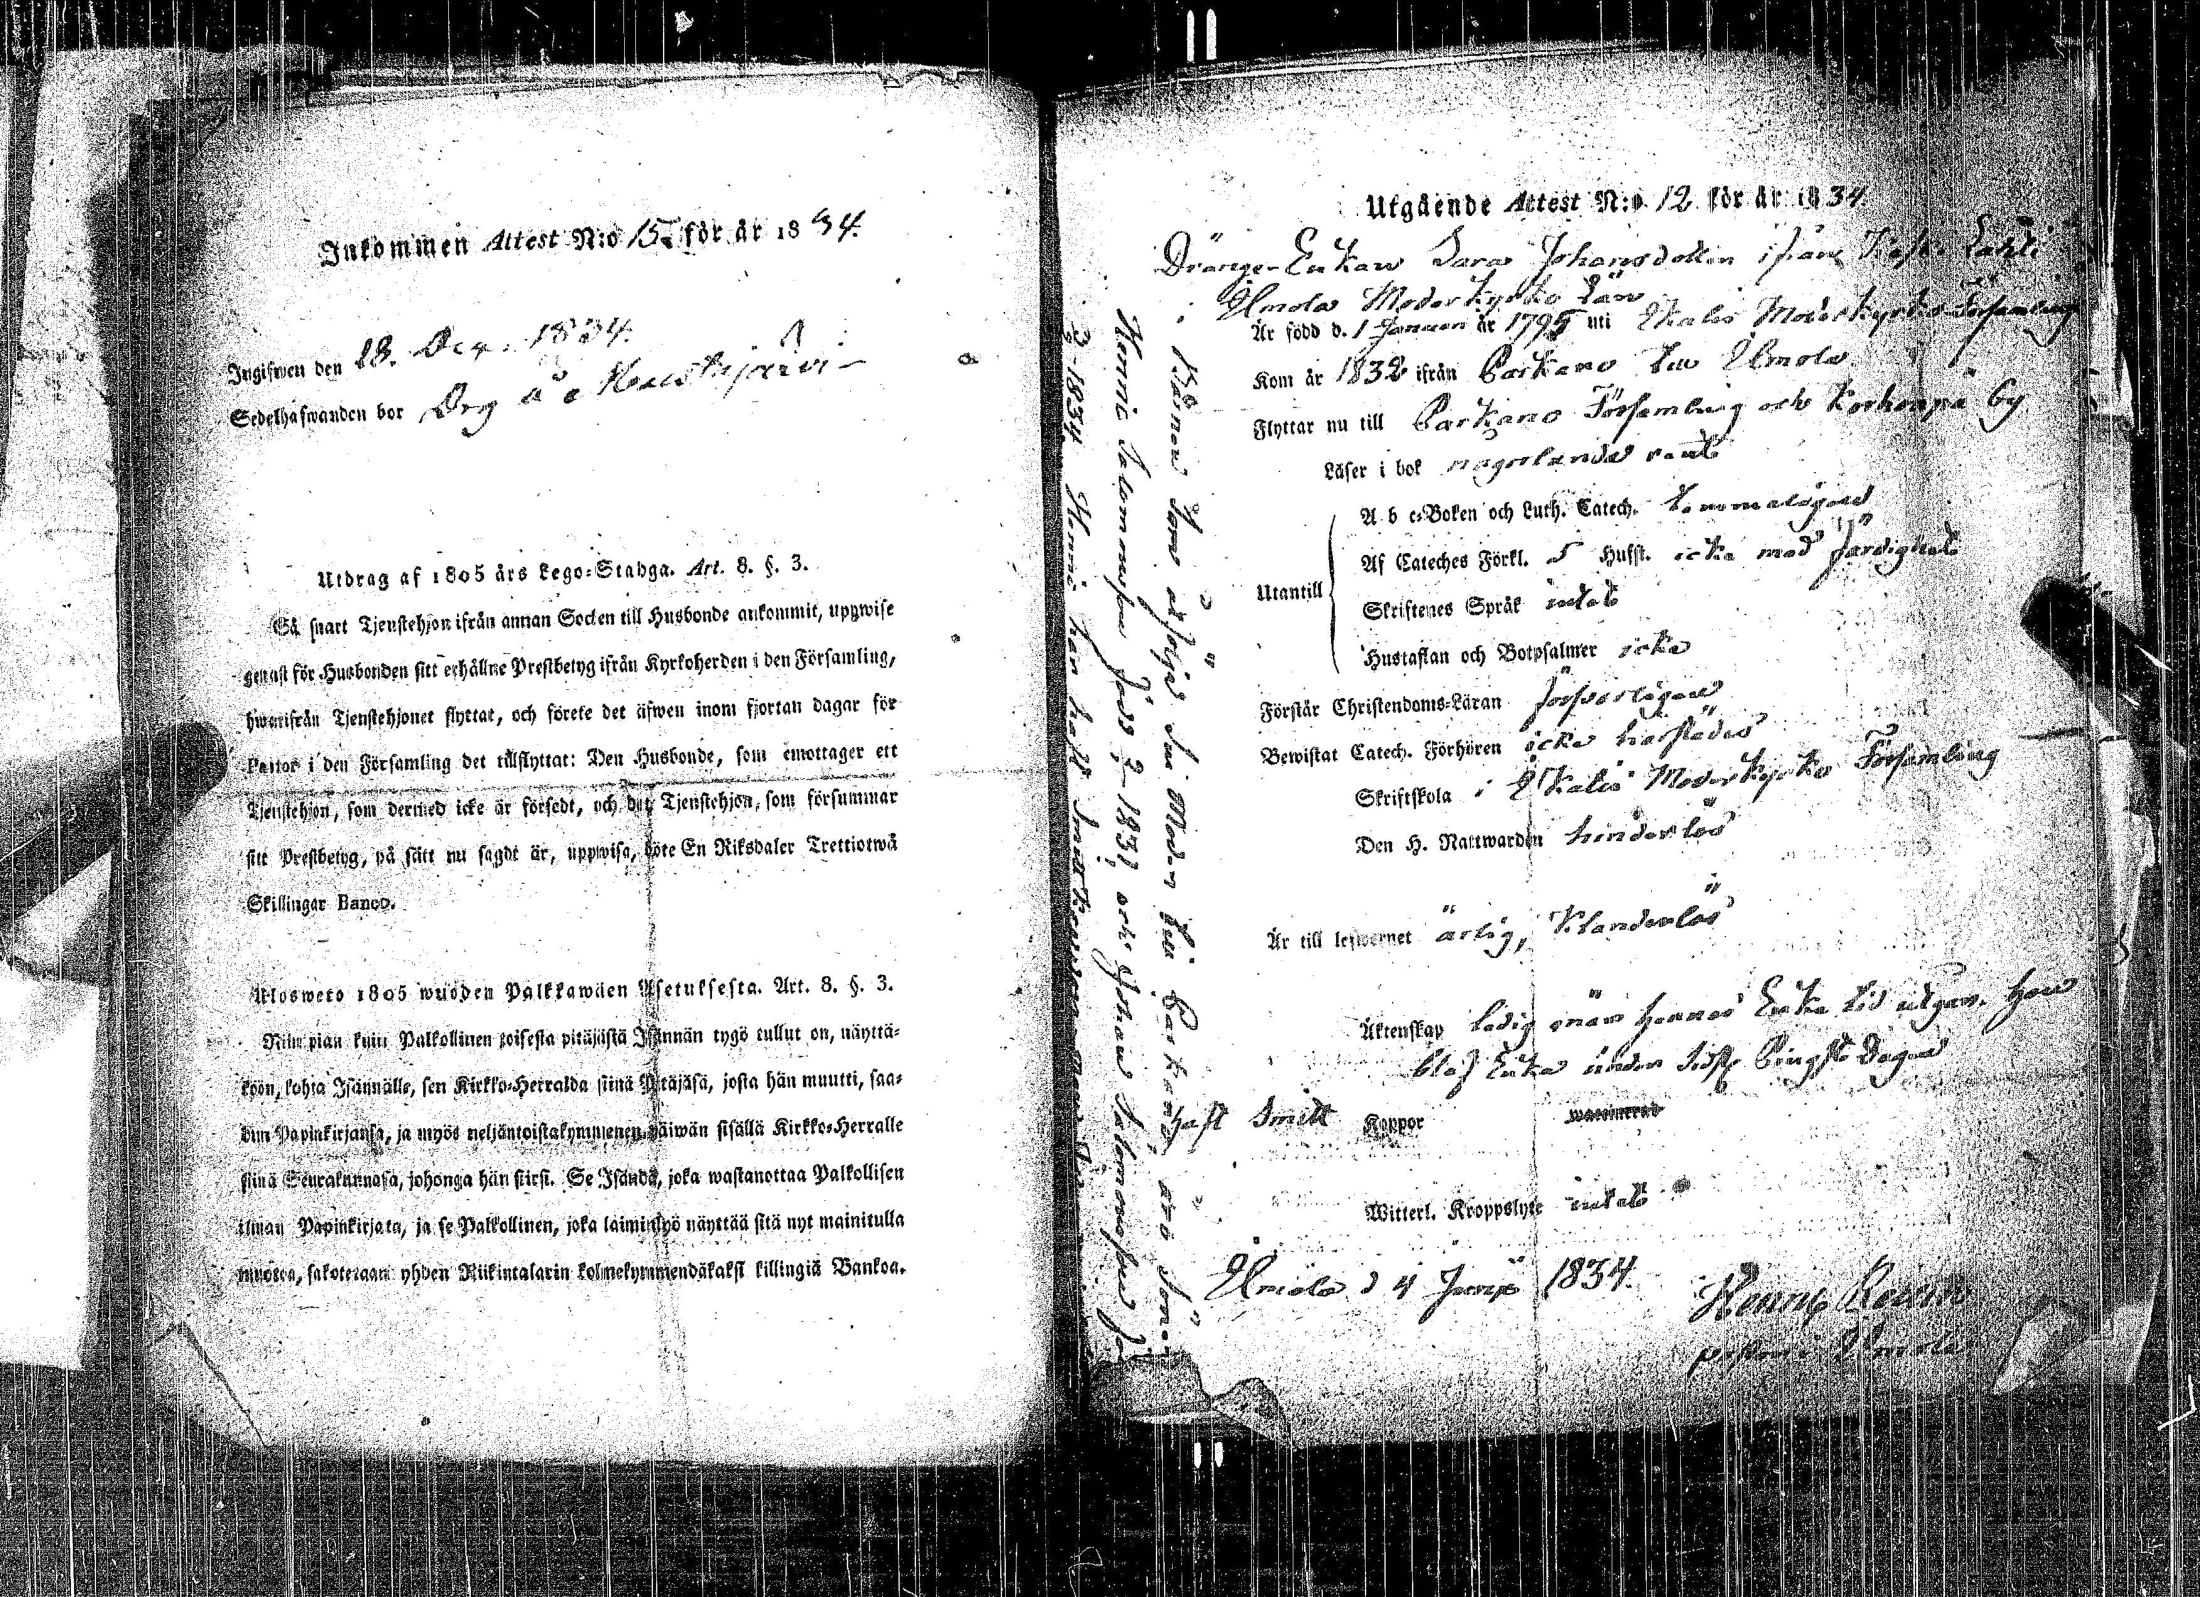 Inkommen Attest N:o 15. för år 1834.
Ingifwen den 28. Dec. 1834.
Sedelhafwanden bor
Utdrag af 1805 års Lego-Stadga. Art. 8. §. 3.
Så snart Tjenstehjon ifrån annan Socken till Husbonde ankommit, uppwise
genast för Husbonden sitt erhållne Prestbetyg ifrån Kyrkoherden i den Församling,
hwarifrån Tjenstehjonet flyttat, och förete det äfwen inom fjortan dagar för
Pastor i den Församling det tillflyttat: Den Husbonde, som emottager ett
Tjenstehjon, som dermed icke är försedt, och det Tjenstehjon, som försummar
sitt Prestbetyg, på sätt nu sagdt är, uppwisa, böte En Riksdaler Trettiotwå
Skillingar Banco.
Ulosweto 1805 wuoden Palkkawäen Asetuksesta. Art. 8. §. 3.
Niin pian kuin Palkollinen toisesta pitäjästä Isännän tygö tullut on, näyttä-
köön, kohta Isännälle, sen Kirkko-Herralda siinä Pitäjäsä, josta hän muutti, saa-
dun Papinkirjansa, ja myös neljäntoistakymmenen päiwän sisällä Kirkko-Herralle
siinä Seurakunnasa, johonga hän siirsi. Se Isändä, joka wastanottaa Palkollisen
ilman Papinkirjata, ja se Palkollinen, joka laiminlyö näyttää sitä nyt mainitulla
muotoa, sakotetaan yhden Riikintalarin kolmekymmendäkaksi killingiä Bankoa.
Utgående Attest N:o 12 för år 1834.
Dränge-Enkan Sara Johansdotter ifrån Lahti
i Ilmola Moderkyrko
Är född d. 1 Januari år 1795 uti Ikalis Moderkyrko Församling
Kom år 1832 ifrån Parkano till Ilmola
Flyttar nu till Parkano Församling och by
Läser i bok någorlunda rent
Utantill
A b c-Boken och Luth. Catech. temmeligen
Af Cateches Förkl. 5 Hufst. icke med färdighet
Skriftenes Språk intet
Hustaflan och Botpsalmer icke
Förstår Christendoms-Läran försvarligen
Bewistat Catech. Förhören icke härstädes
Skriftskola i Ikalis Moderkyrko Församling
Den H. Nattwarden hinderlös
Är till lefwernet ärlig, klanderlös
Äktenskap ledig när hennes Enke tid utgår. Hon
blef Enka under sidste Pingste Dagar
haft Smitt Koppor
Witterl. Kroppslyte intet
Ilmola d 4 Junii 1834.
Henric
i Ilmola
i Barnen som åtfölja sin Moder till Parkano, äro Söner
Henric Salomonsson född 1831 och Johan Salomonsson
1834 Henric har haft Smittkoppor